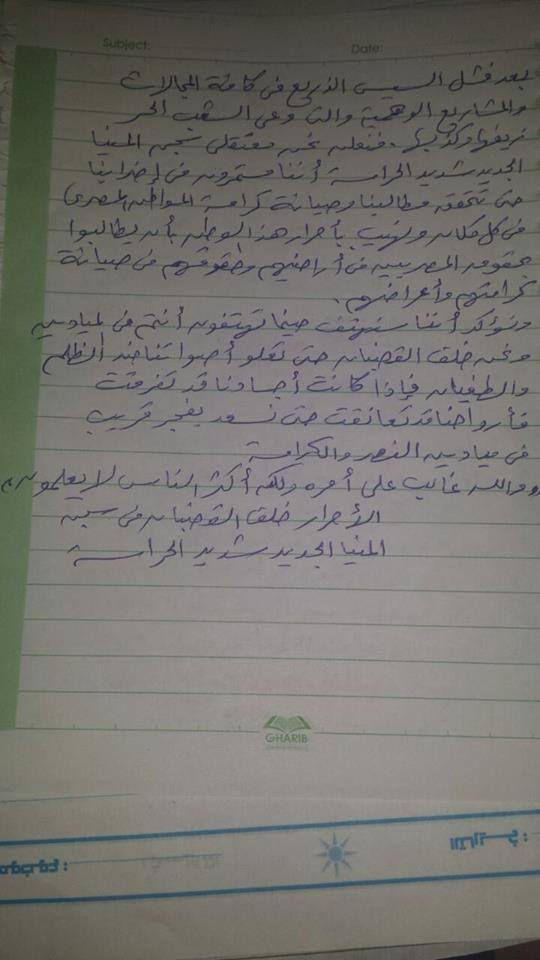 Subject: Date:
بعد فشل السيسى الذريع فى كافة المجالات
والمشاريع الوهمية والتى وعى الشعب الحر
زيفها وكذبها. فنعلن نحن معتقلى سجن المنيا
الجديد شديد الحراسة أننا مستمرون فى إضرابنا
حتى تتحقق مطالبنا وصيانة كرامة المواطن المصرى
فى كل مكان ونهيب بأحرار هذا الوطن بأن يطالبوا
بحقوق المصريين فى أراضيهم وحقوقهم فى صيانة
كرامتهم وأعراضهم.
ونؤكد أننا سنهتف حينما تهتفون أنتم فى الميادين
ونحن خلف القضبان حتى تعلو أصواتنا ضد الظلم
والطغيان فإذا كانت أجسادنا قد تفرقت
فأرواحنا قد تعانقت حتى نسعد بفجر قريب
فى ميادين النصر والكرامة
"والله غالب على أمره ولكن أكثر الناس لا يعلمون"
الأحرار خلف القضبان فى سجن
المنيا الجديد شديد الحراسة
GHARIB